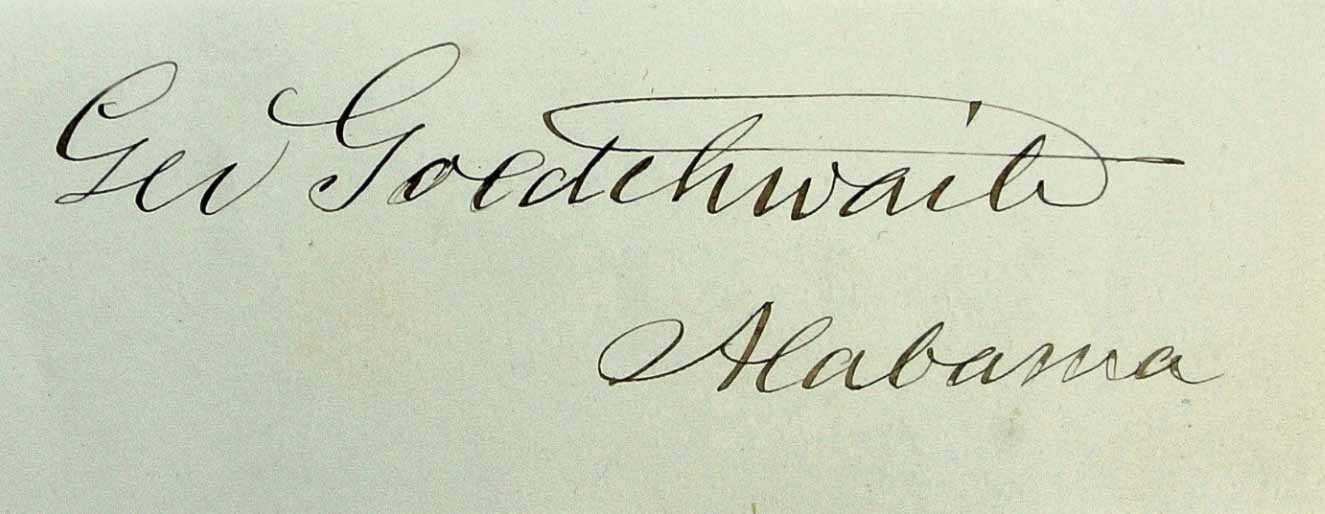 Geo Goldthwaite
Alabama